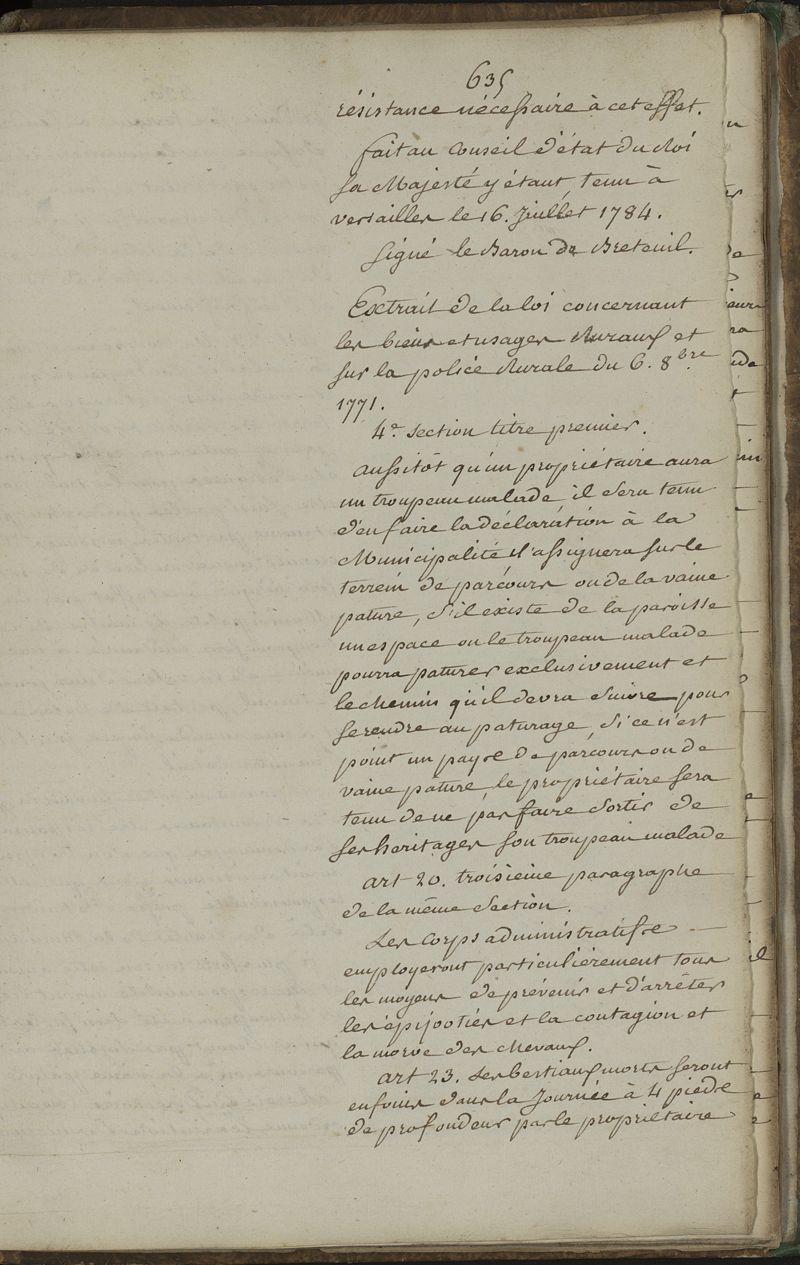 635
résistance nécessaire à cet effet.
fait au Conseil d'état du Roi
sa Majesté y étant, tenu à
versailles le 16. Juillet 1784.
signé le Baron de Breteuil.
Extrait de la loi concernant
les biens et usages Ruraux et
sur la police Rurale du 6. 8bre
1771.
4e. section titre premier.
aussitôt qu'un propriétaire aura
un troupeau malade il sera tenu
d'en faire la déclaration à la
Municipalité il assignera sur le
terrein de parcours ou de la vaine
pature, s'il existe de la paroisse
un espace ou le troupeau malade
pourra paturer exclusivement et
le chemin qu'il devra suivre pour
se rendre au paturage, si ce n'est
point un pays de parcours ou de
vaine pature, le propriétaire sera
tenu de ne pas faire sortir de
ses heritages son troupeau malade
art 20. troisieme paragraphe
de la même section.
Les Corps administratifs
employeront particuliérement tous
les moyens de prévenir et d'arrêter
les épizooties et la contagion et
la morve des chevaux.
art 23. Les bestiaux morts seront
enfouis dans la Journée à 4 pieds
de profondeur par le propriétaire